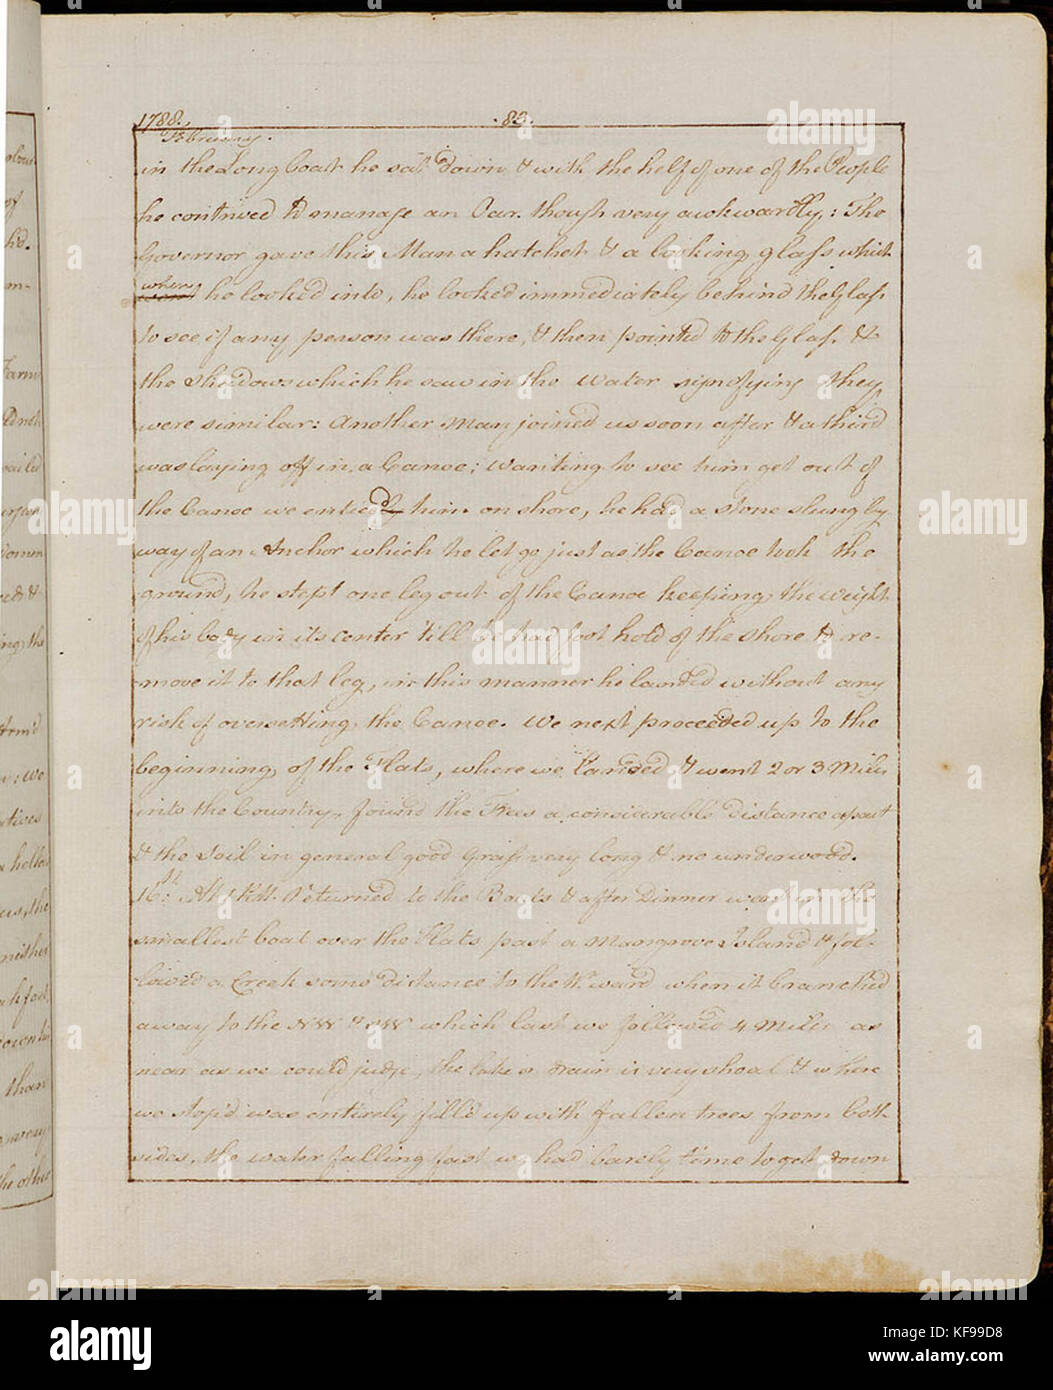 1788.,
.83.
February.
in the Long boat he sat down & with the help of one of the People
he contrived to manage an Oar. though very awkwardly,: The
Governor gave this Man a hatchet & a looking glass which
when he looked into, he looked immediately behind the Glass
to see if any person was there, & then pointed to the Glass. &
the Shadows which he saw in the Water signifying they
were similar: Another Man joined us soon after & a third
was laying off in a Canoe; Wanting to see him get out of
the Canoe we enticed him on shore, he had a stone slung by
way of an Anchor which he let go just as the Canoe took the
ground, he stept one leg out of the Canoe keeping the weight
of his body in its center 'till he had foot hold of the shore to re-
-move it to that leg, in this manner he landed without any
risk of oversetting the Canoe. We next proceeded up to the
beginning of the Flats, where we landed & went 2 or 3 Miles
into the Country, found the Trees a considerable distance apart
& the Soil in general good Grass very long & no underwood.
16: At 1 P.M. Returned to the Boats & after Dinner went in the
smallest boat over the Flats past a Mangrove Island & fol-
low'd a Creek some distance to the Wward when it branched
away to the NW & SW which last we followed 4 Miles as
near as we could judge, the lake or drain is very shoal & where
we stop'd was entirely fill'd up with fallen trees from both
sides, the water falling fast we had barely time to get down
alamy stock photo
alamy
Image ID: KF99D8
www.alamy.com